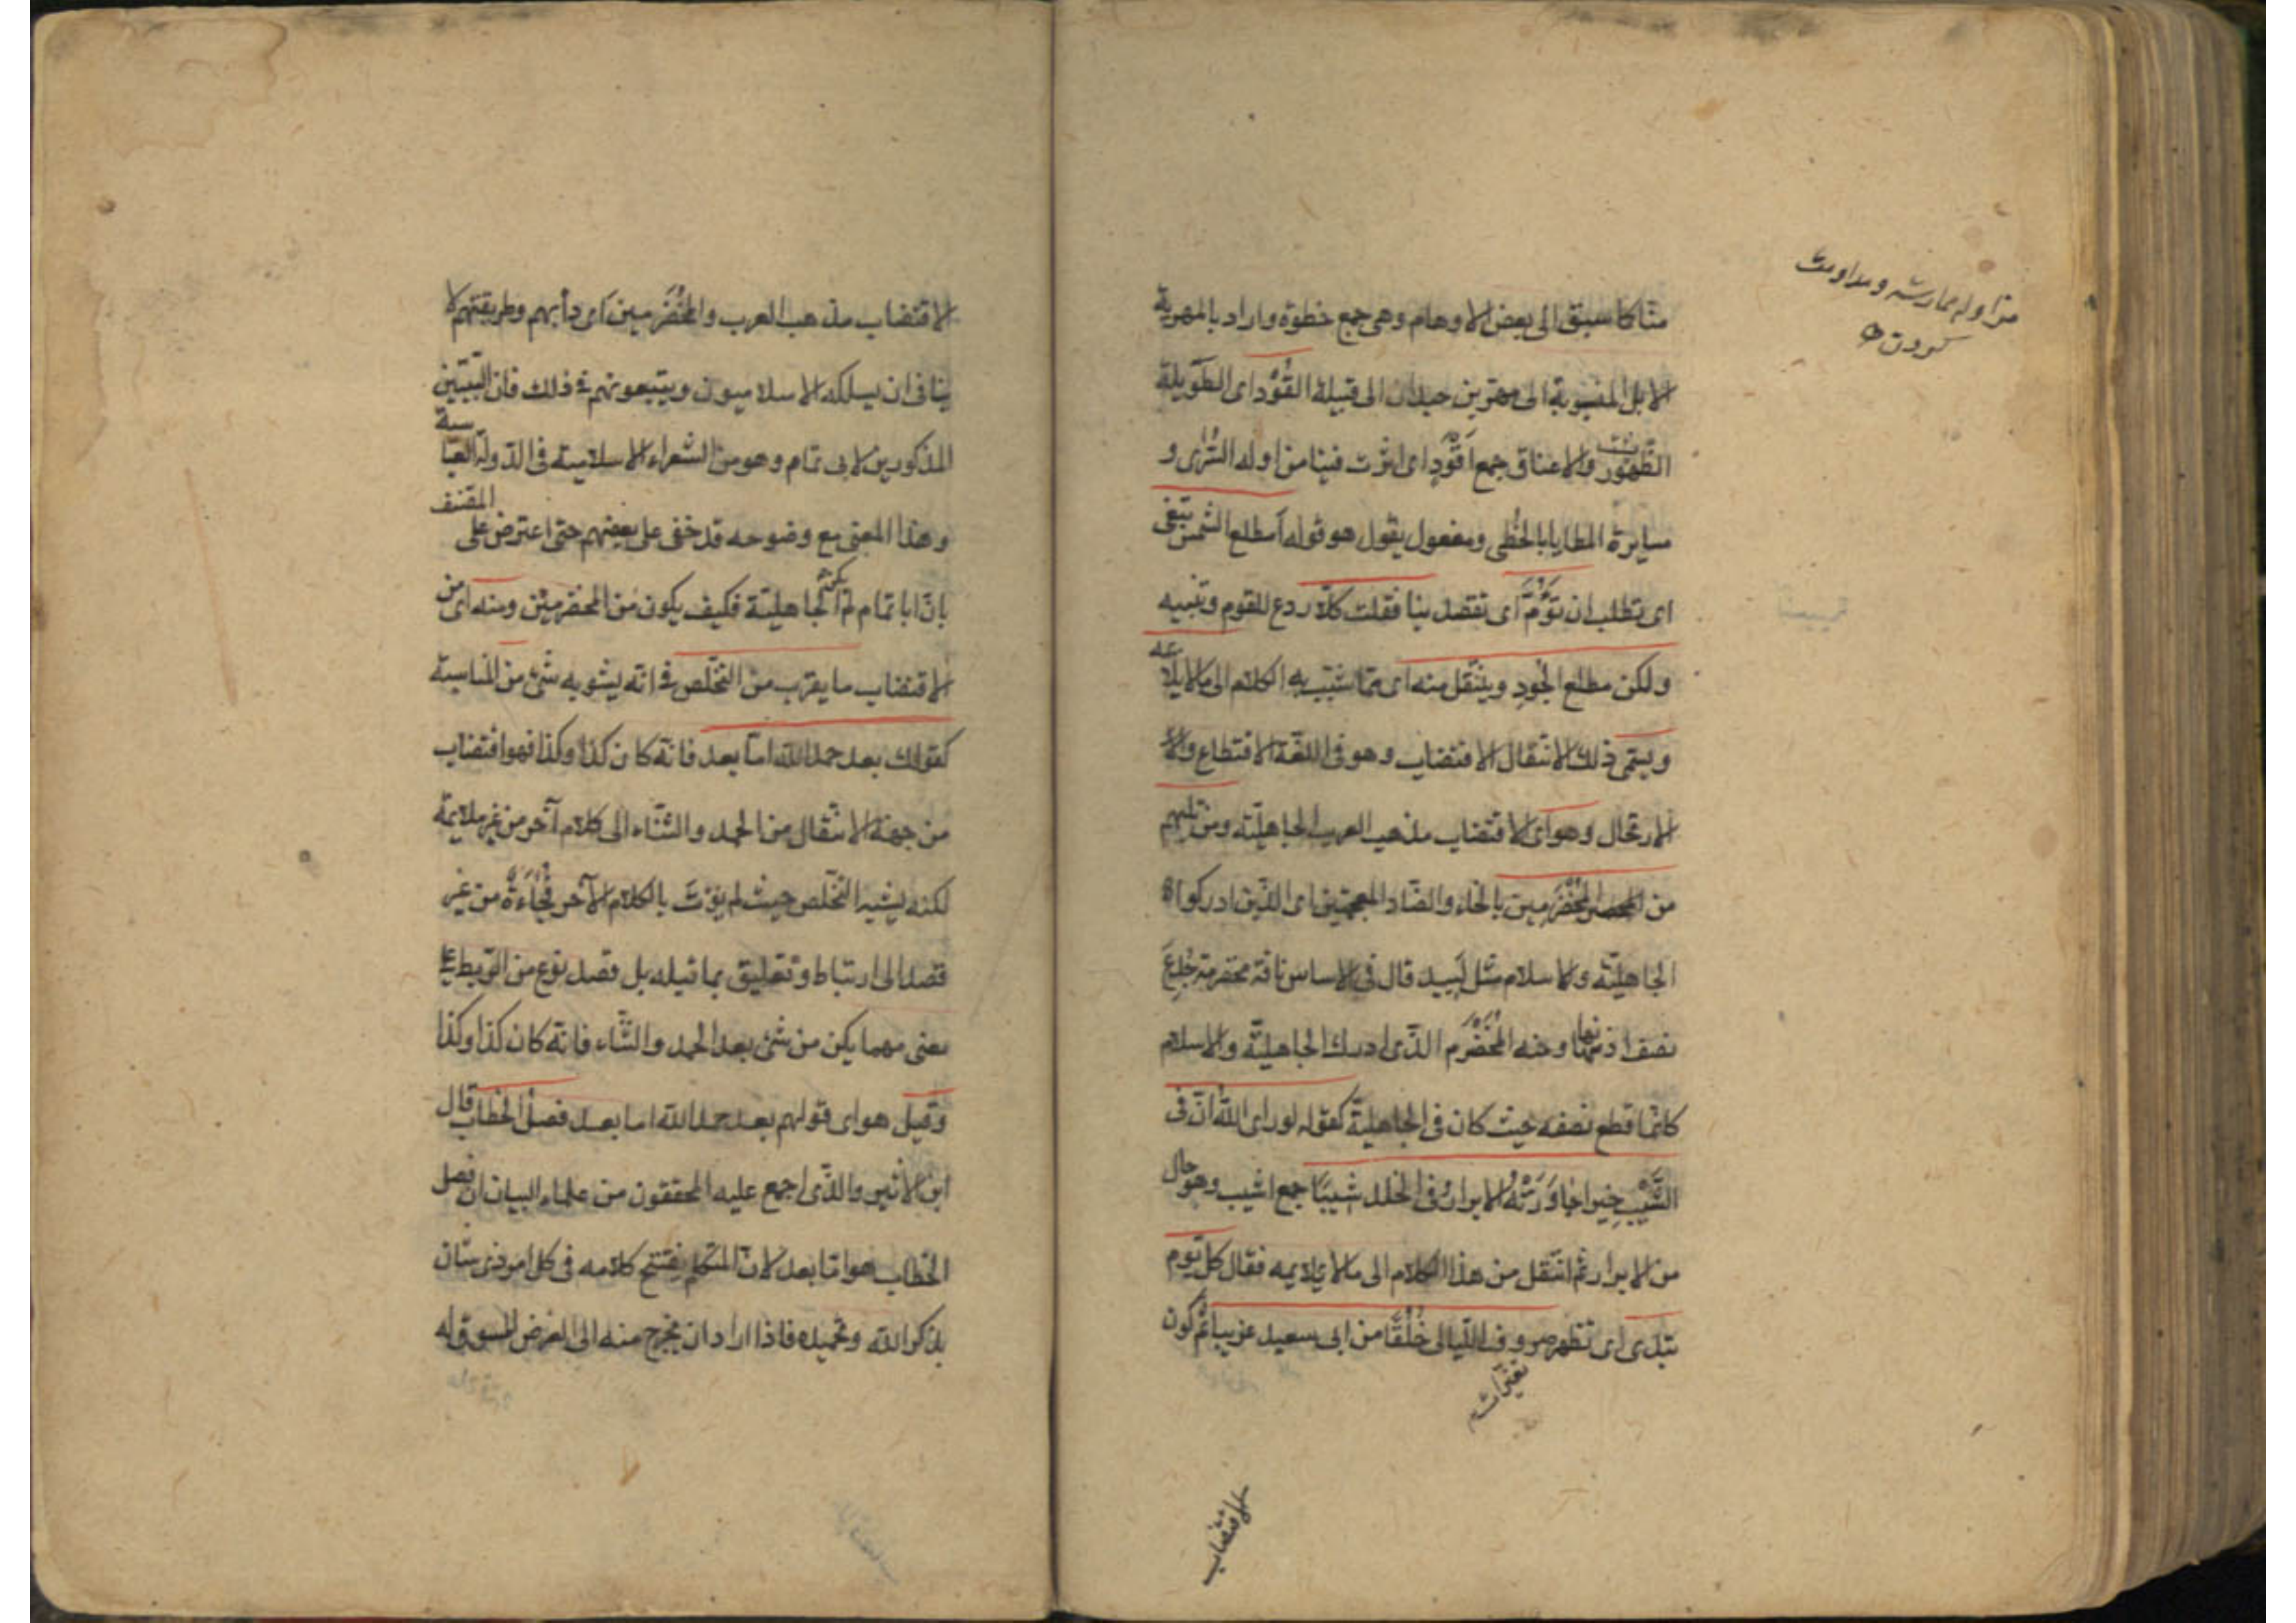 منا كما سبق الى بعض الاوهام وهى جمع خطوة واراد بالمهرية
الابل المنسوبة الى مهر بن حيدان الى قبيلة القُوْد اى الطويلة
الظهور والاعناق جمع اَقْوَد اى اثرت فينا مزاولة السُّرٰى و
مسايرة المطايا بالخُطٰى ومفعول يقول هو قوله أمطلع الشمس تبغى
اى تطلب ان تَؤُمَّ اى تقصد بنا فقلت كلّا ردع للقوم وتنبيه
ولكن مطلع الجُودِ وينتقل منه اى مما شبب به الكلام الى ما لا يلائمه
ويسمّى ذلك الانتقال الاقتضاب وهو فى اللغة الاقتطاع و
الارتجال وهو اى الاقتضاب مذهب العرب الجاهليّة ومن يليهم
من المُخَضْرَمِين بالخاء والضاد المعجمتين اى الذين ادركوا
الجاهليّة والاسلام مثل لَبيد قال فى الاساس ناقة مخضرمة جُدِعَ
نصف اذنها ومنه المُخَضْرَم الذى ادرك الجاهليّة والاسلام
كانّما قطع نصفه حيث كان فى الجاهليّة كقوله لو راى الله انّ فى
الشَّيْبِ خيرا جاوَرَتْهُ الابرارُ فى الخلد شيبًا جمع اشيب وهو حال
من الابرار ثم انتقل من هذا الكلام الى ما لا يلايمه فقال كل يوم
تبدى اى تظهر صروف الليالى خُلُقًا من ابى سعيد غريبا ثم كون
تغيّرات
الاقتضاب
مزاولة ممارسة ومداومت
كردن
الاقتضاب مذهب العرب والمُخَضْرَمين اى دأبهم وطريقتهم لا
ينافى ان يسلكه الاسلاميون ويتبعونهم فى ذلك فان البيتين
المذكورين لابى تمام وهو من الشعراء الاسلامية فى الدولة العباسية
وهذا المعنى مع وضوحه قد خفى على بعضهم حتى اعترض على المصنف
بانّ ابا تمام لم يدرك الجاهليّة فكيف يكون من المخضرمين ومنه اى من
الاقتضاب ما يقرب من التخلّص فى انّه يشوبه شئ من المناسبة
كقولك بعد حمد الله امّا بعد فانّه كان كذا وكذا فهو اقتضاب
من جهة الانتقال من الحمد والثناء الى كلام آخر من غير ملايمة
لكنه يشبه التخلّص حيث لم يؤت بالكلام الآخر فُجَاءَةً من غير
قصد الى ارتباط وتعليق بما قبله بل قصد نوع من الربط على
معنى مهما يكن من شئ بعد الحمد والثناء فانّه كان كذا وكذا
وقيل هو اى قولهم بعد حمد الله اما بعد فصل الخطاب قال
ابن الاثير والذى اجمع عليه المحققون من علماء البيان ان فصل
الخطاب هو امّا بعد لانّ المتكلم يفتتح كلامه فى كل امر ذى شان
بذكر الله وتحميده فاذا اراد ان يخرج منه الى الغرض المسوق له